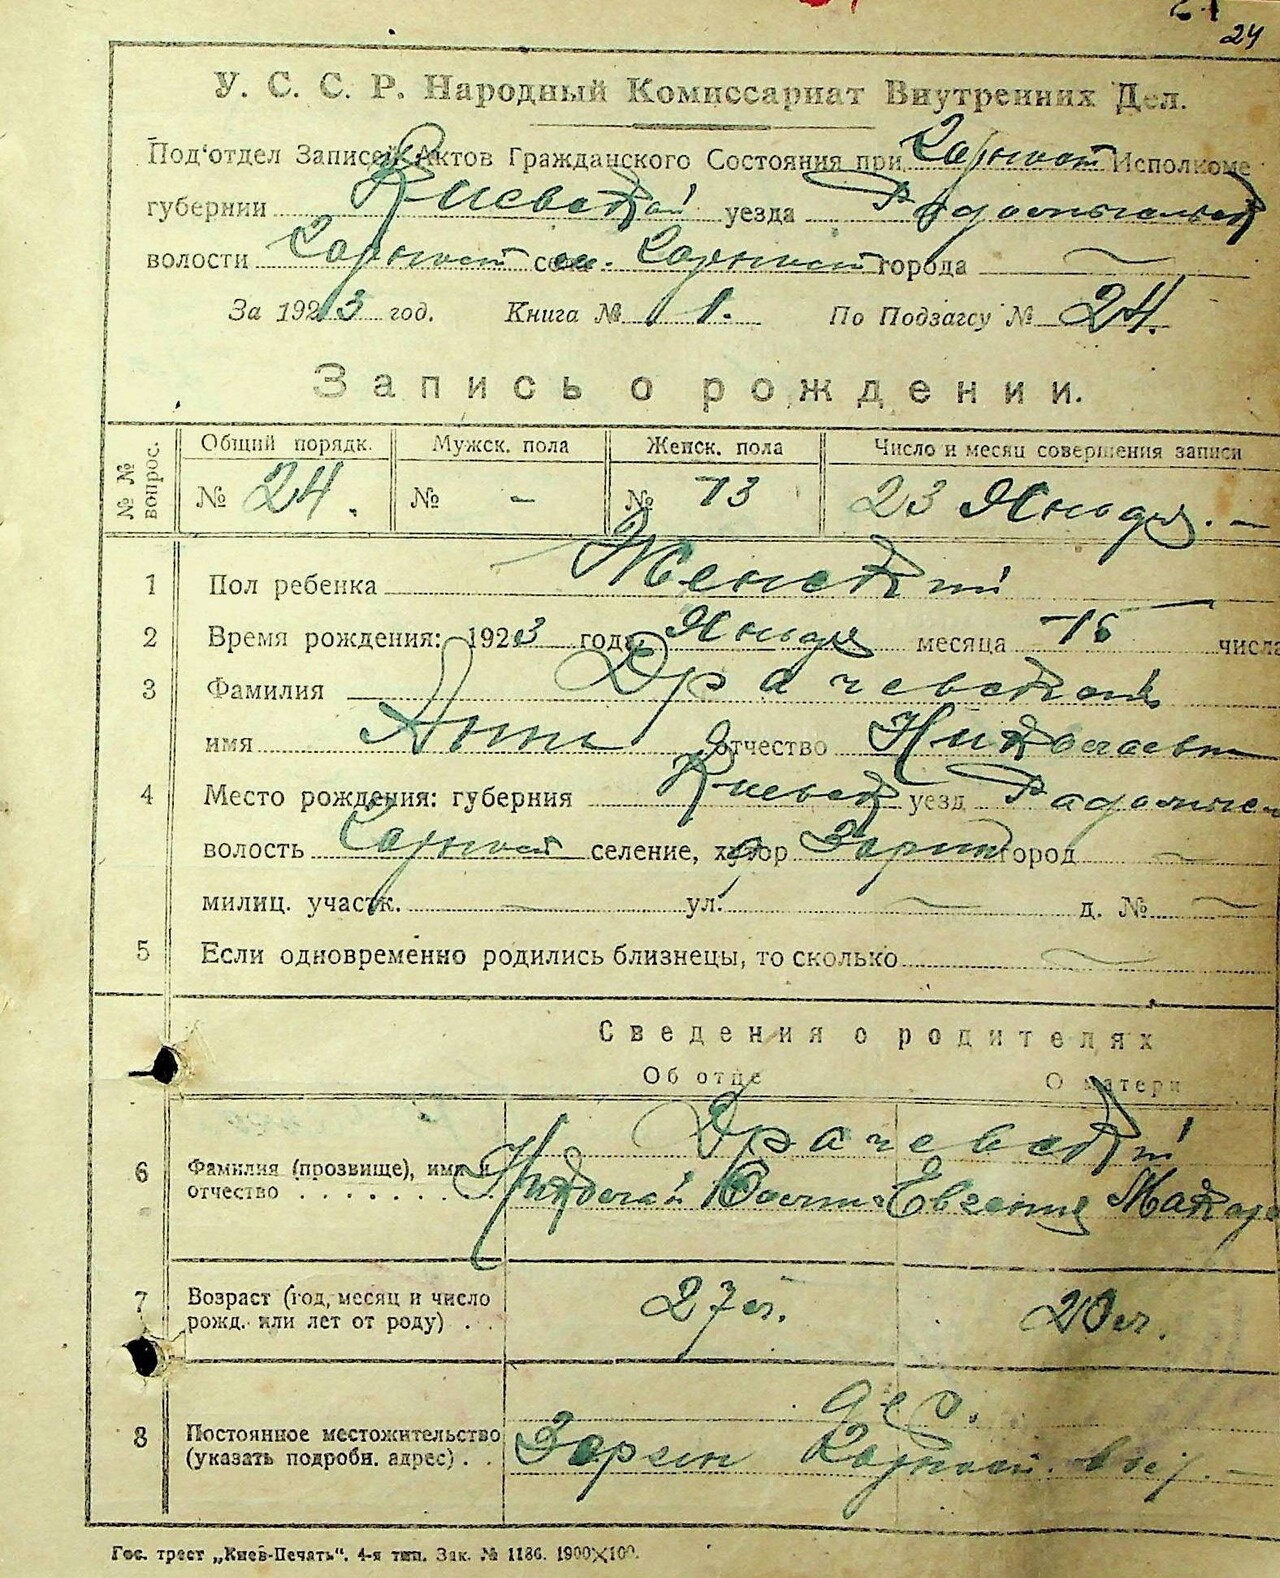 24
У. С. С. Р. Народный Комиссариат Внутренних Дел.
Под'отдел Записей Актов Гражданского Состояния при Исполкоме
губернии Киевской уезда
волости села города —
За 1923 год. Книга № 1. По Подзагсу № 24.
Запись о рождении.
№ № вопрос. Общий порядк. Мужск. пола Женск. пола Число и месяц совершения записи
№ 24. № - № 13 23 Января. —
1 Пол ребенка Женский
2 Время рождения: 1923 года Января месяца 15 числа
3 Фамилия Драчевский
имя Анна отчество Николаевн
4 Место рождения: губерния Киевск уезд Радомысл
волость селение, хутор Зорин город —
милиц. участк. — ул. — д. № —
5 Если одновременно родились близнецы, то сколько —
Сведения о родителях
Об отце О матери
Драчевский
6 Фамилия (прозвище), имя и
отчество . . . . . . . Николай Евгения Макар
7 Возраст (год, месяц и число
рожд. или лет от роду) . . 27 л. 20 л.
дер.
8 Постоянное местожительство
(указать подробн. адрес) . . Зорин
Гос. трест „Киев-Печать“. 4-я тип. Зак. № 1186. 1900×100.